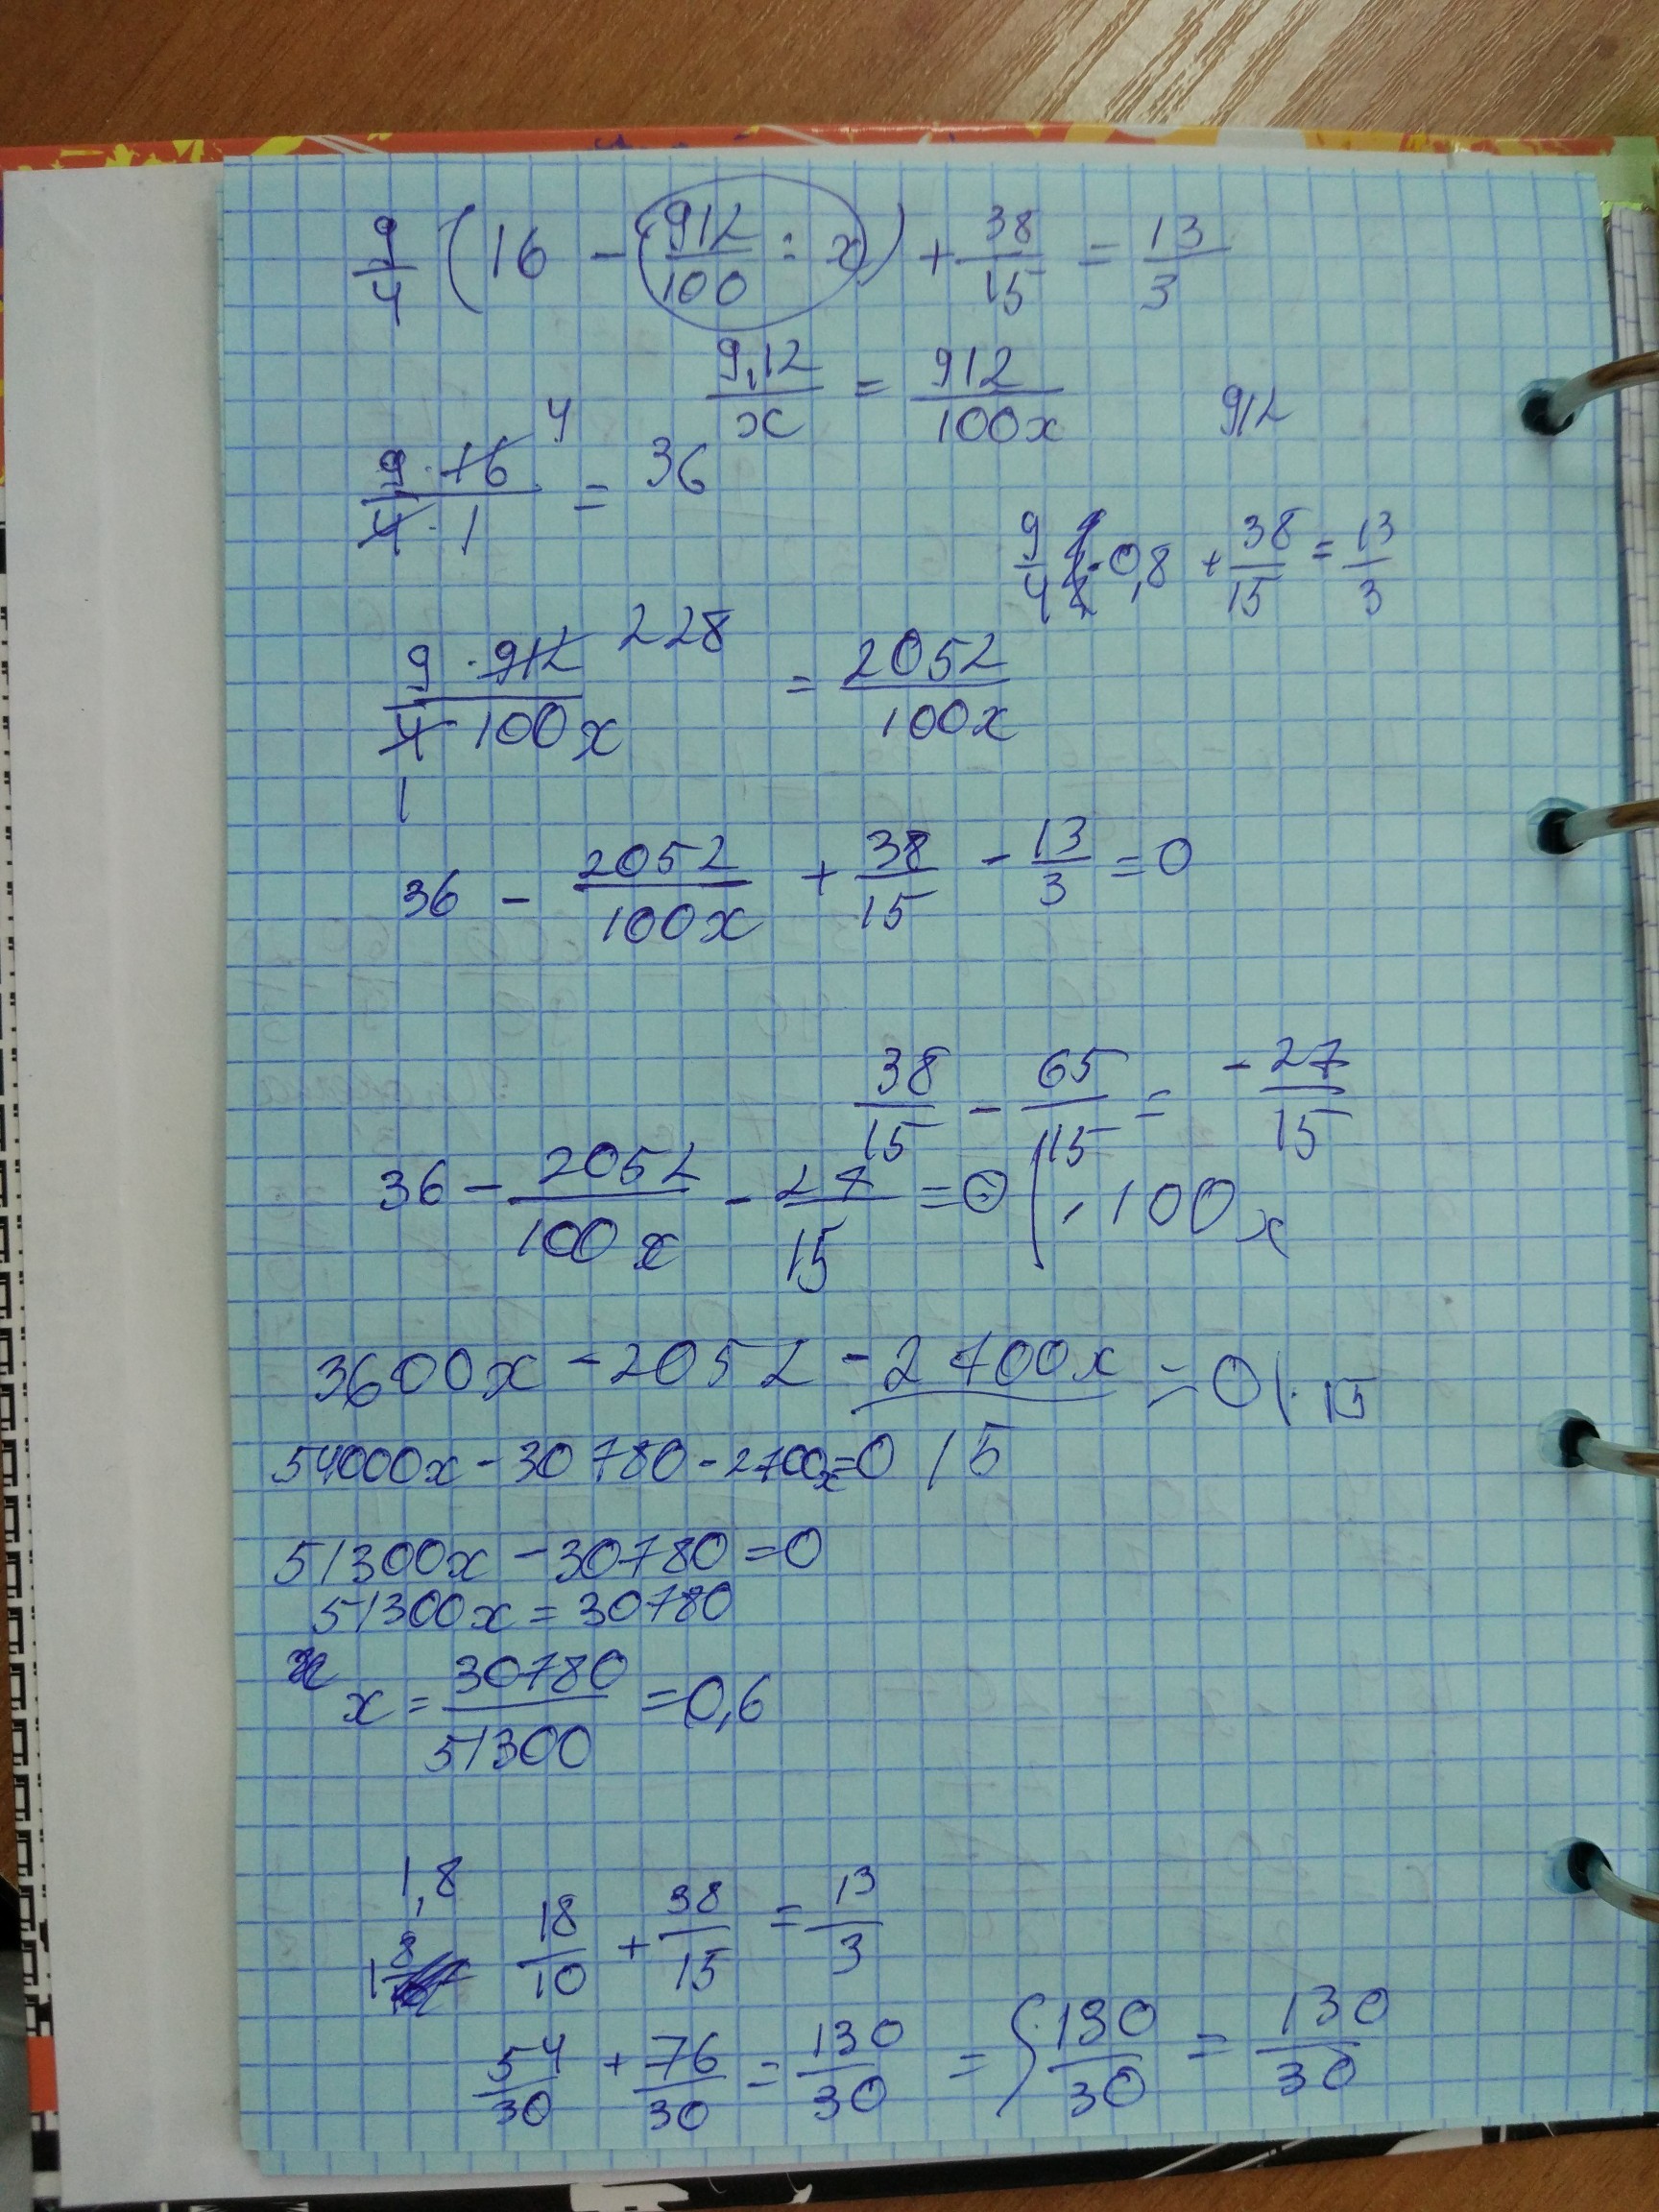 9/4 (16 - 912/100 : x) + 38/15 = 13/3
9,12/x = 912/100x
912
9 · 16 / 4 · 1 = 36
4
9/4 · 0,8 + 38/15 = 13/3
9 · 912 / 4 · 100x = 2052/100x
228
1
36 - 2052/100x + 38/15 - 13/3 = 0
38/15 - 65/15 = -27/15
36 - 2052/100x - 27/15 = 0 | · 100x
3600x - 2052 - 2700x/15 = 0 | · 15
54000x - 30780 - 2700x = 0
51300x - 30780 = 0
51300x = 30780
x = 30780/51300 = 0,6
1,8
18/10 + 38/15 = 13/3
54/30 + 76/30 = 130/30 = 130/30 = 130/30